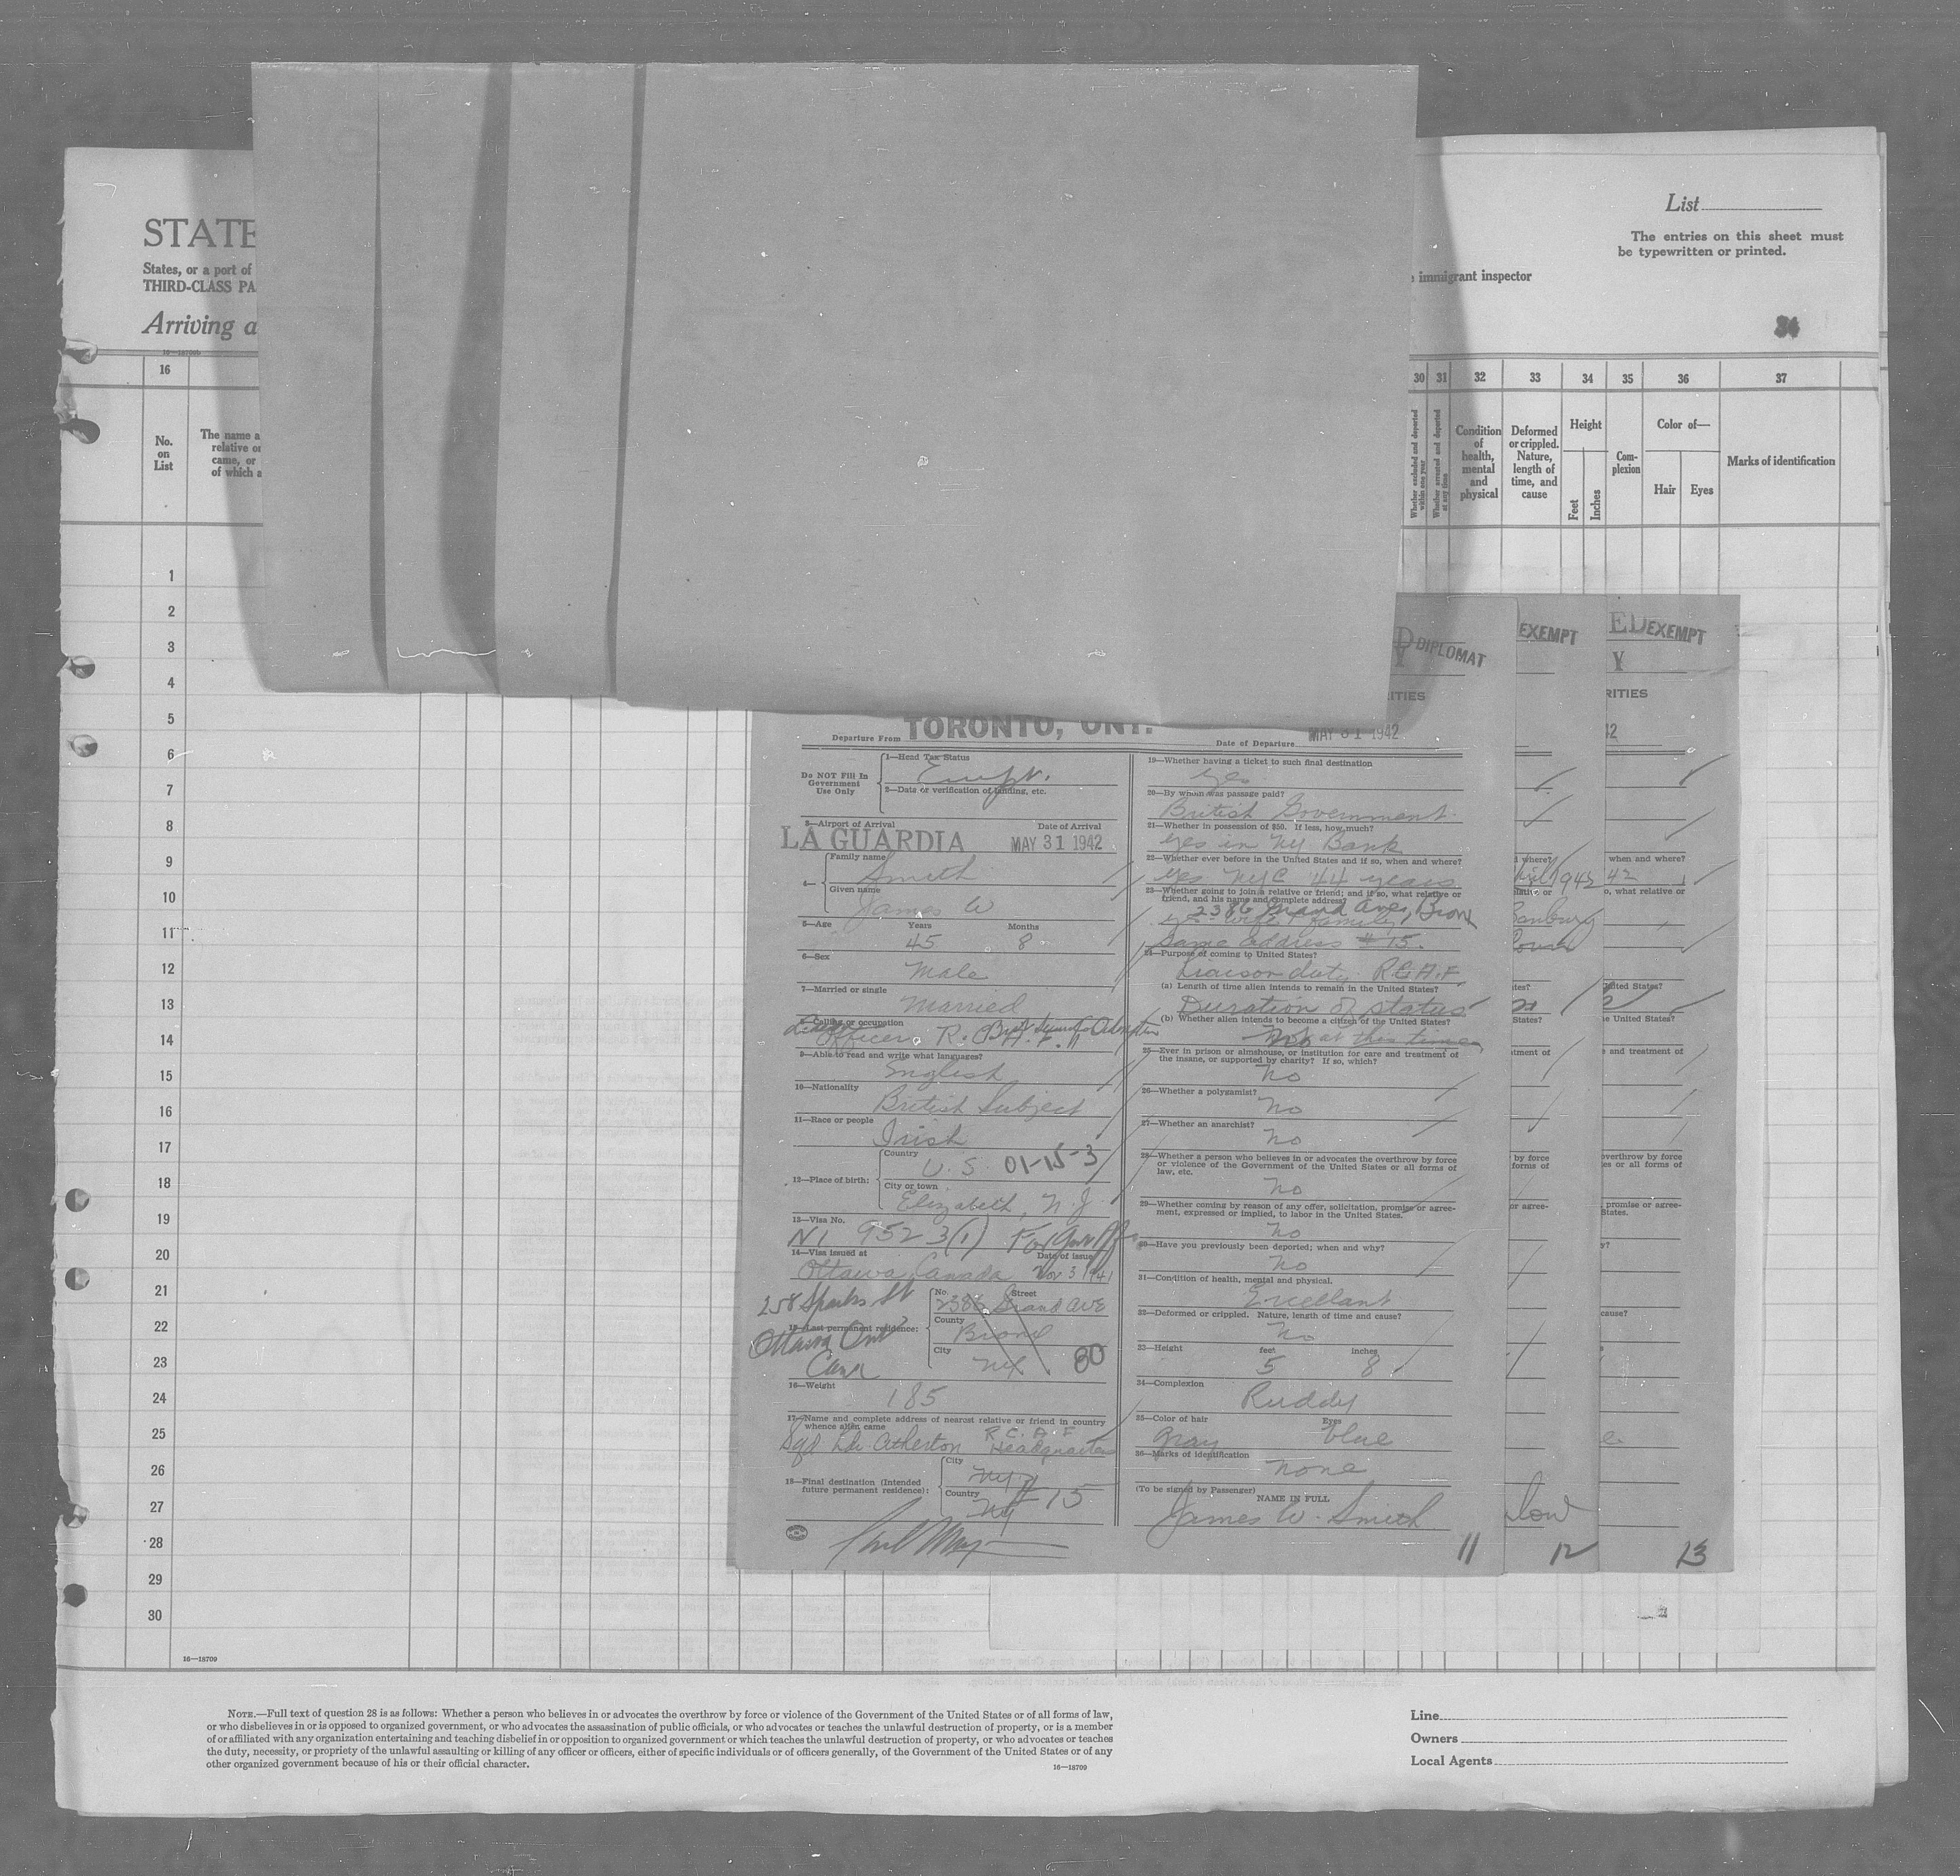 STATE
States, or a port of
THIRD-CLASS PA
Arriving a
16—18709b
List
The entries on this sheet must
be typewritten or printed.
immigrant inspector
34
16
30 31 32 33 34 35 36 37
No.
on
List
The name a
relative or
came, or
of which a
Whether excluded and deported
within one year
Whether arrested and deported
at any time
Condition
of
health,
mental
and
physical
Deformed
or crippled.
Nature,
length of
time, and
cause
Height
Feet
Inches
Com-
plexion
Color of—
Hair Eyes
Marks of identification
1
2
3
4
5
6
7
8
9
10
11
12
13
14
15
16
17
18
19
20
21
22
23
24
25
26
27
28
29
30
16—18709
D DIPLOMAT
Y
RITIES
Departure From TORONTO, ONT.
Date of Departure MAY 31 1942
Do NOT Fill In
Government
Use Only
1—Head Tax Status
Exempt.
2—Date or verification of landing, etc.
3—Airport of Arrival
Date of Arrival
LA GUARDIA MAY 31 1942
4—
Family name
Smith
Given name
James W
5—Age Years Months
45 8
6—Sex
Male
7—Married or single
Married
8—Calling or occupation
Officer R.
9—Able to read and write what languages?
English
10—Nationality
British Subject
11—Race or people
Irish
12—Place of birth:
Country
U.S. 01-15-3
City or town
Elizabeth, N J
13—Visa No.
N1 9523(1) For Gov Off
14—Visa issued at
Date of issue
Ottawa, Canada Nov 3 1941
258 Sparks St
Ottawa Ont
Can
15—Last permanent residence:
No. Street
2386 Grand Ave
County
Bronx
City
NY 80
16—Weight
185
17—Name and complete address of nearest relative or friend in country
whence alien came
Atherton R.C.A.F
Headquarters
18—Final destination (Intended
future permanent residence):
City
NY
Country
NY #15
19—Whether having a ticket to such final destination
Yes
20—By whom was passage paid?
British Government.
21—Whether in possession of $50. If less, how much?
yes in NY Bank
22—Whether ever before in the United States and if so, when and where?
yes NYC 44 years
23—Whether going to join a relative or friend; and if so, what relative or
friend, and his name and complete address?
2386 Grand Ave, Bronx
yes - wife & family
Same address #15.
24—Purpose of coming to United States?
Liaison duty R.C.A.F
(a) Length of time alien intends to remain in the United States?
Duration of status
(b) Whether alien intends to become a citizen of the United States?
Not at this time
25—Ever in prison or almshouse, or institution for care and treatment of
the insane, or supported by charity? If so, which?
no
26—Whether a polygamist?
no
27—Whether an anarchist?
no
28—Whether a person who believes in or advocates the overthrow by force
or violence of the Government of the United States or all forms of
law, etc.
no
29—Whether coming by reason of any offer, solicitation, promise or agree-
ment, expressed or implied, to labor in the United States.
no
30—Have you previously been deported; when and why?
no
31—Condition of health, mental and physical.
Excellant
32—Deformed or crippled. Nature, length of time and cause?
No
33—Height feet inches
5 8
34—Complexion
Ruddy
35—Color of hair Eyes
Gray blue
36—Marks of identification
none
(To be signed by Passenger)
NAME IN FULL
James W. Smith
11
EXEMPT
d where?
1942
lative or
ates?
States?
tment of
by force
forms of
or agree-
low
12
EDEXEMPT
Y
RITIES
42
when and where?
42
o, what relative or
United States?
e United States?
e and treatment of
overthrow by force
es or all forms of
promise or agree-
States.
y?
cause?
13
NOTE.—Full text of question 28 is as follows: Whether a person who believes in or advocates the overthrow by force or violence of the Government of the United States or of all forms of law,
or who disbelieves in or is opposed to organized government, or who advocates the assassination of public officials, or who advocates or teaches the unlawful destruction of property, or is a member
of or affiliated with any organization entertaining and teaching disbelief in or opposition to organized government or which teaches the unlawful destruction of property, or who advocates or teaches
the duty, necessity, or propriety of the unlawful assaulting or killing of any officer or officers, either of specific individuals or of officers generally, of the Government of the United States or of any
other organized government because of his or their official character.
16—18709
Line
Owners
Local Agents